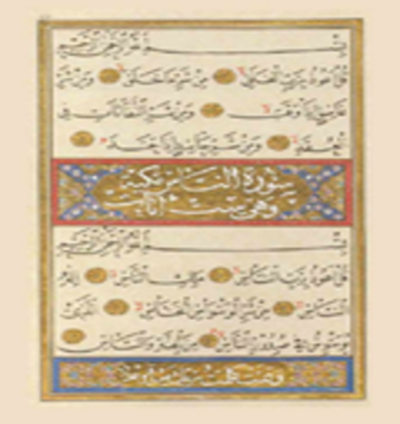 بسم الله الرحمن الرحيم
قل أعوذ برب الفلق من شر ما خلق ومن شر
غاسق إذا وقب ومن شر النفاثات في
العقد ومن شر حاسد إذا حسد
سورة الناس مكية
وهي ست آيات
بسم الله الرحمن الرحيم
قل أعوذ برب الناس ملك الناس إله
الناس من شر الوسواس الخناس الذي
يوسوس في صدور الناس من الجنة والناس